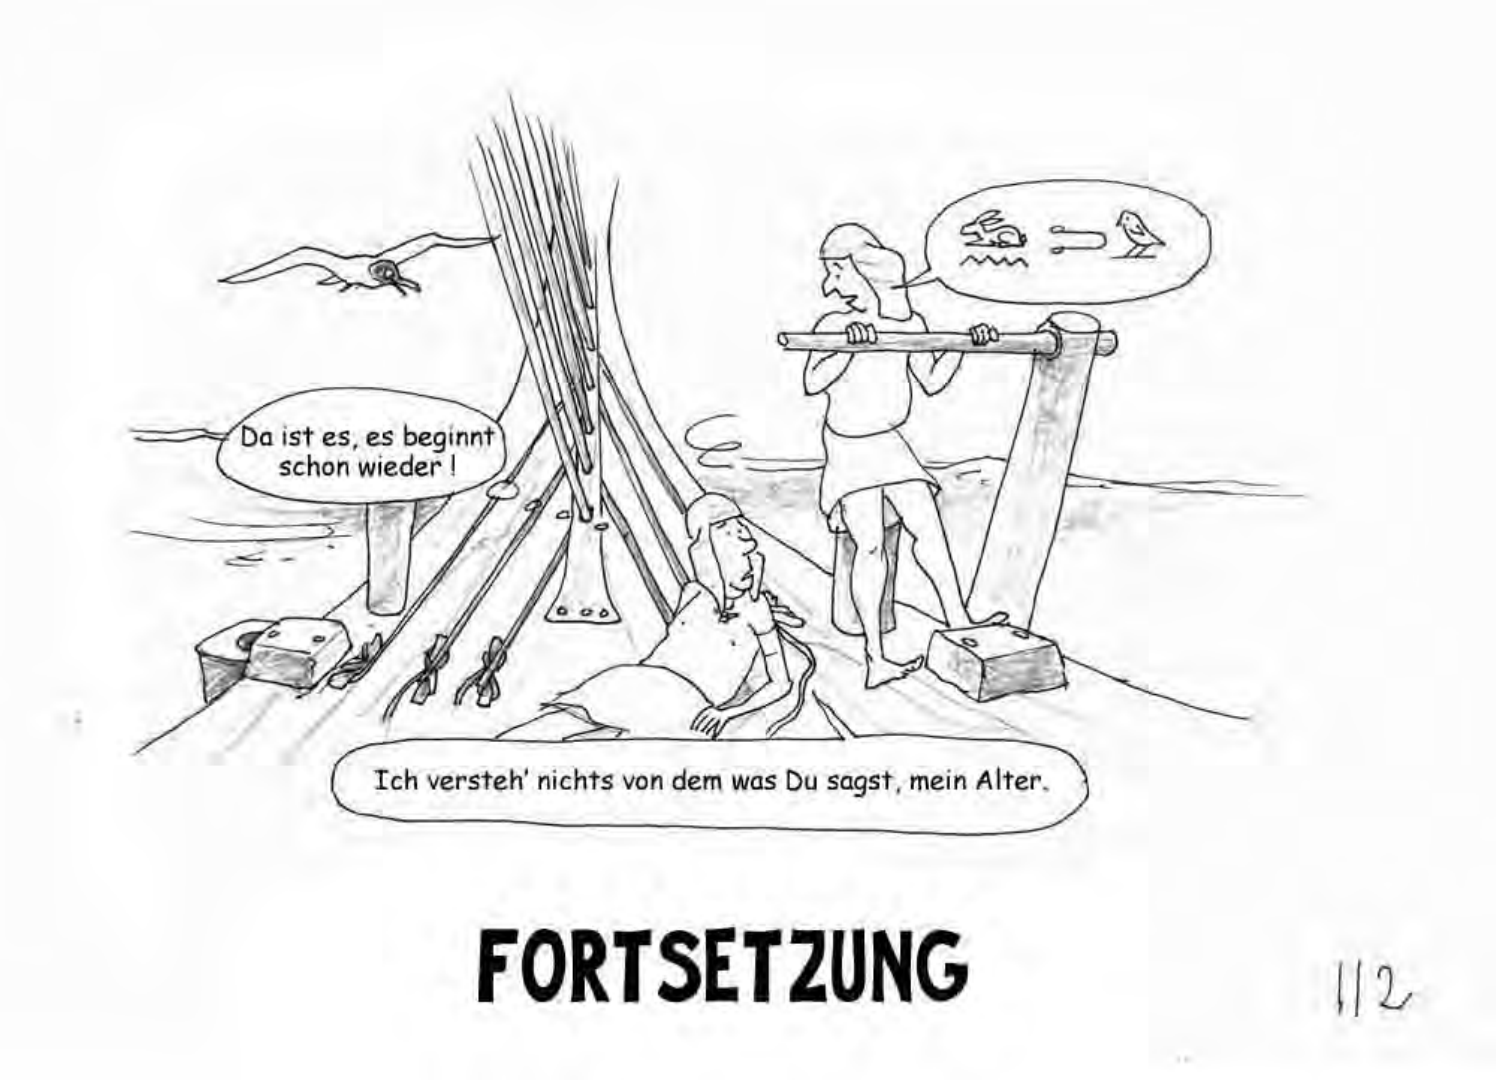 Da ist es, es beginnt
schon wieder !
Ich versteh' nichts von dem was Du sagst, mein Alter.
FORTSETZUNG
112